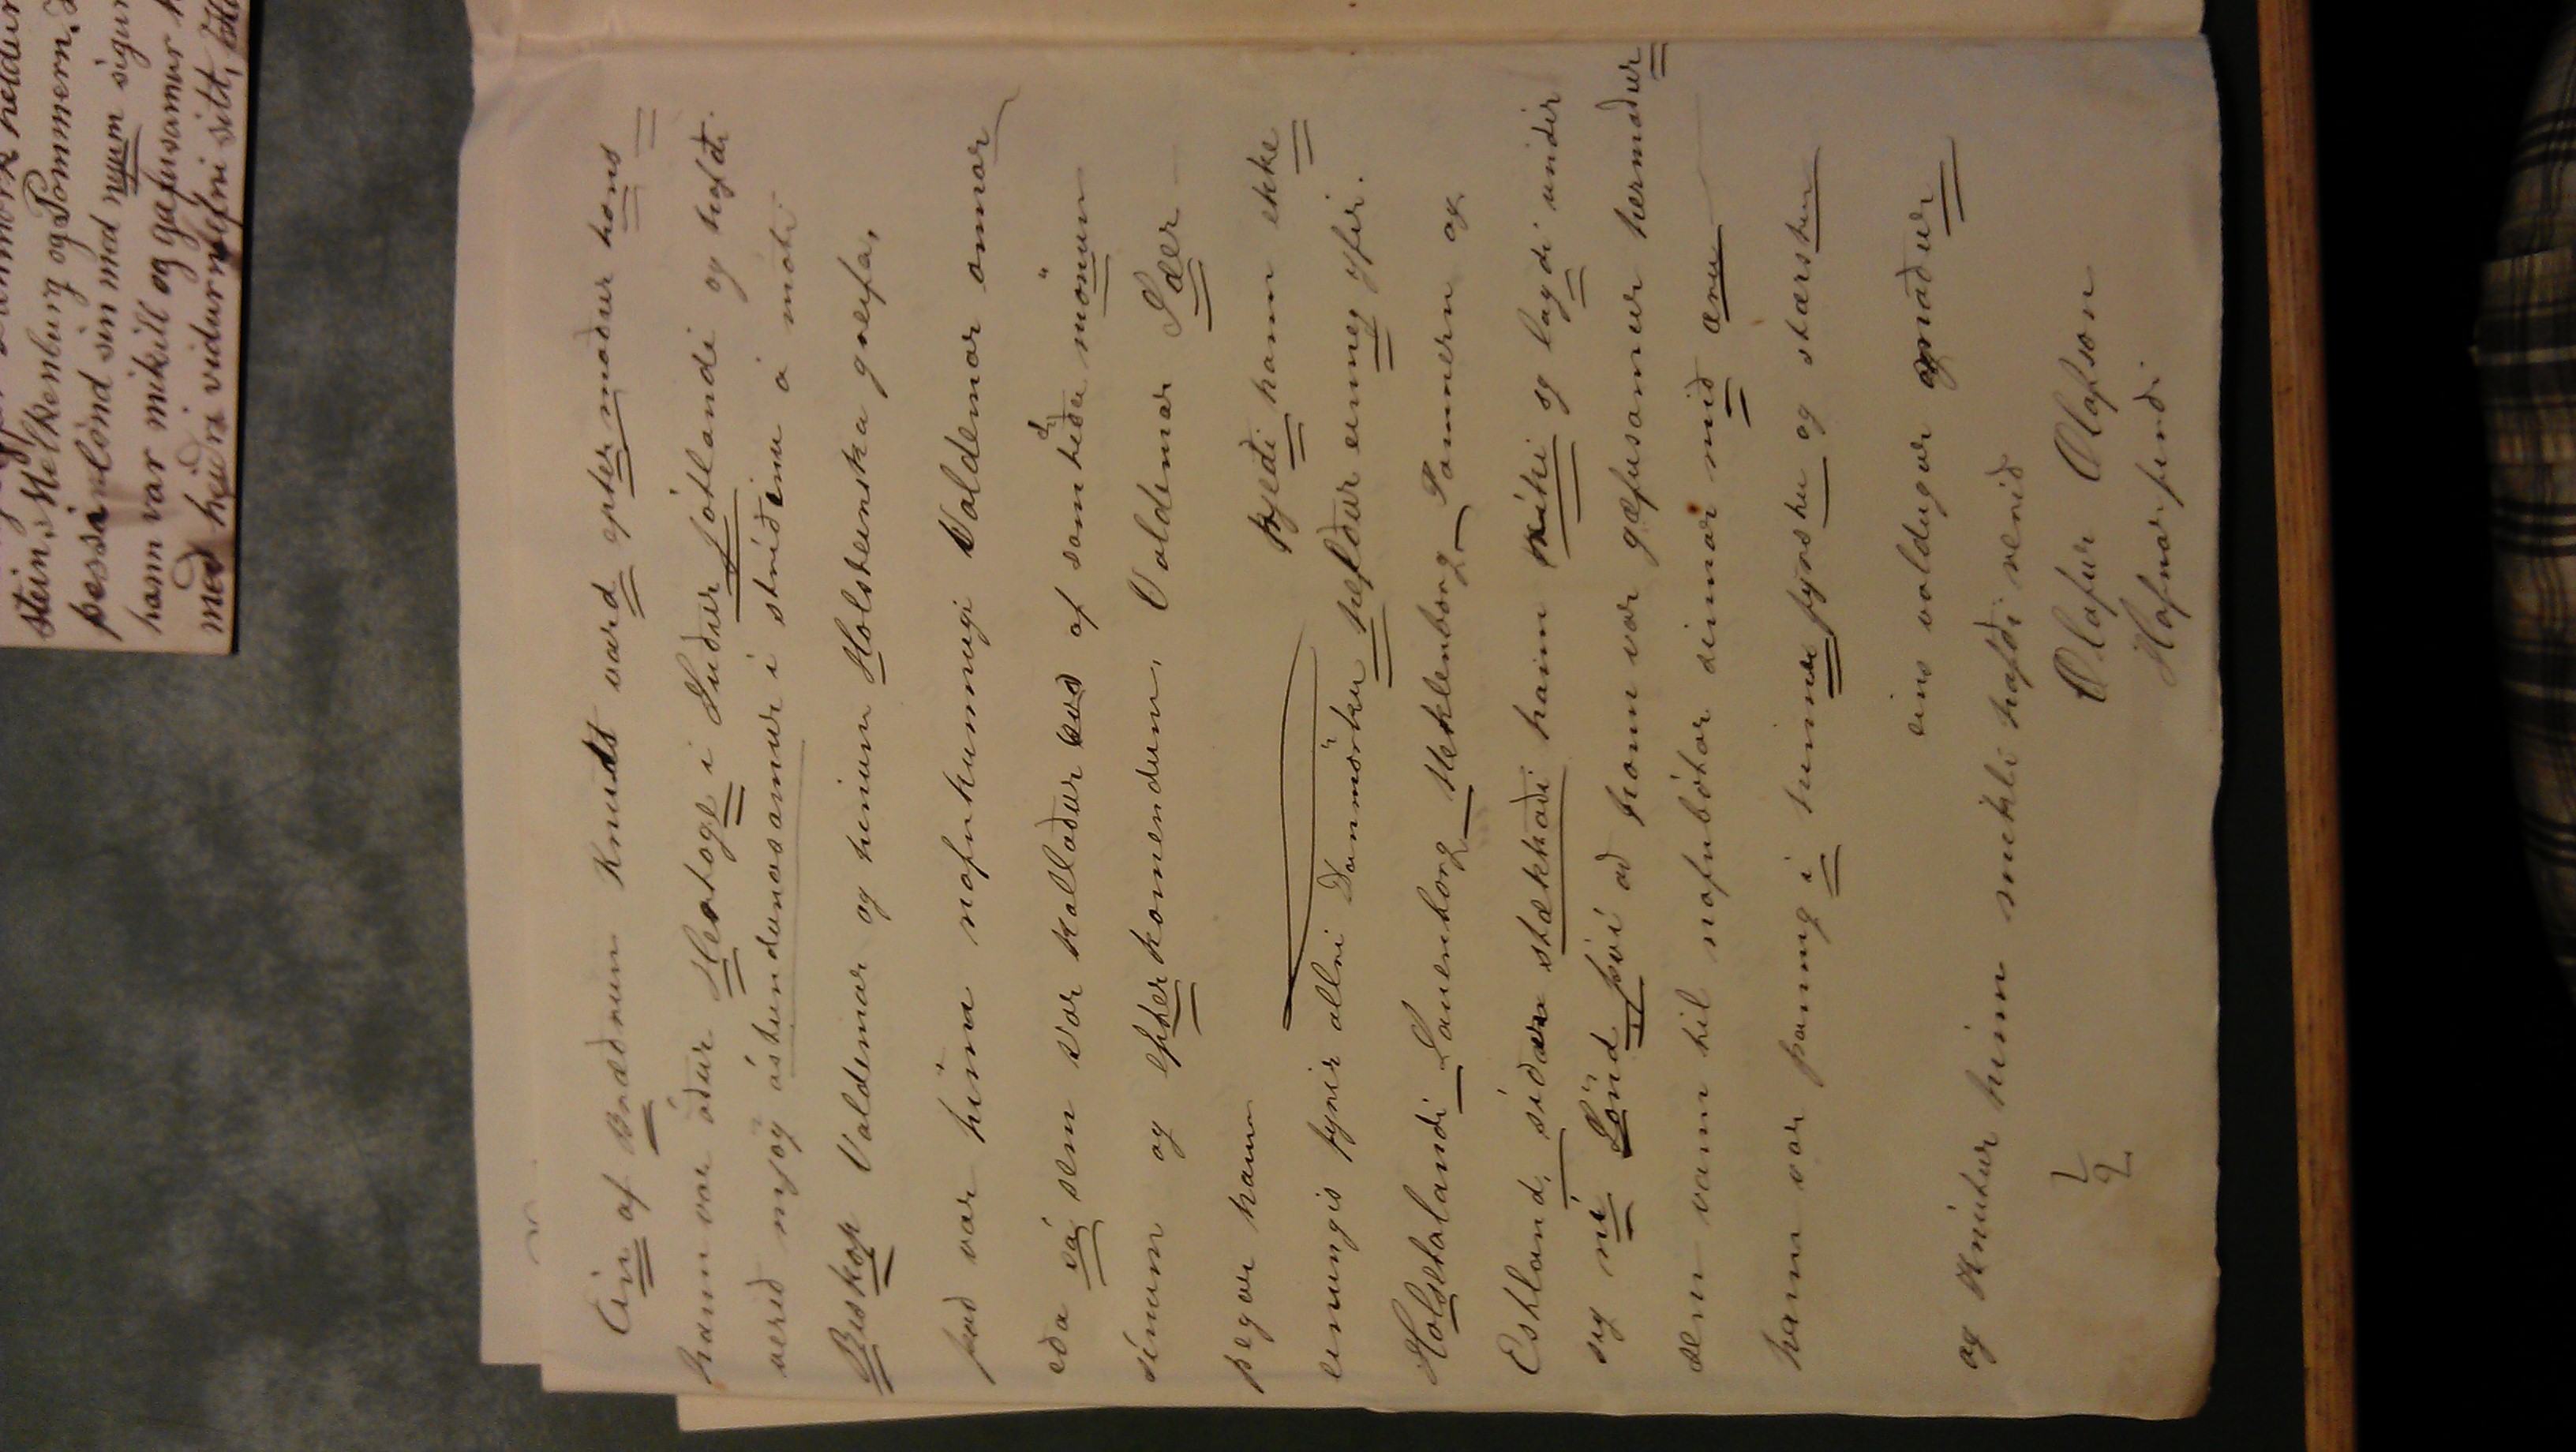 stein, Melkenburg og Pommern.
þessi lönd sin með nyum sigur
hann var mikill og gæfusamur h
með heiðri viðurnefni sitt,
Ein af Bræðrum Knuds varð epter maður hans
hann var áður Hertoge i Suður jótlandi og hafði
verið mjög ástundunasamur i striðinu á móti
Beskop Valdemar og hinum Holsteinska greifa,
það var hinn nafnkunnugi Valdemar annar
eða sá sem var kallaður af samtíða mönum
sínum og epter komendum, Valdimar Seer
þegar hann kjedi hann ekke
einungis fyrir allri Danmörku heldur einneg yfir.
Holsetalandi Lauenborg Meklenborg Pammern og
Estland, síðan stækkaði hann ríki og lagdi undir
sig ní Lönd því að honn var gæfusamur hermaður
sem vann til nafnbótar sinnar mið æru
hann var þannig i sinne fyrstu og stærstu
eins voldugur maður
og Knútur hinn mikli hafdi verið
Olafur Olafson
Hafnarfirði